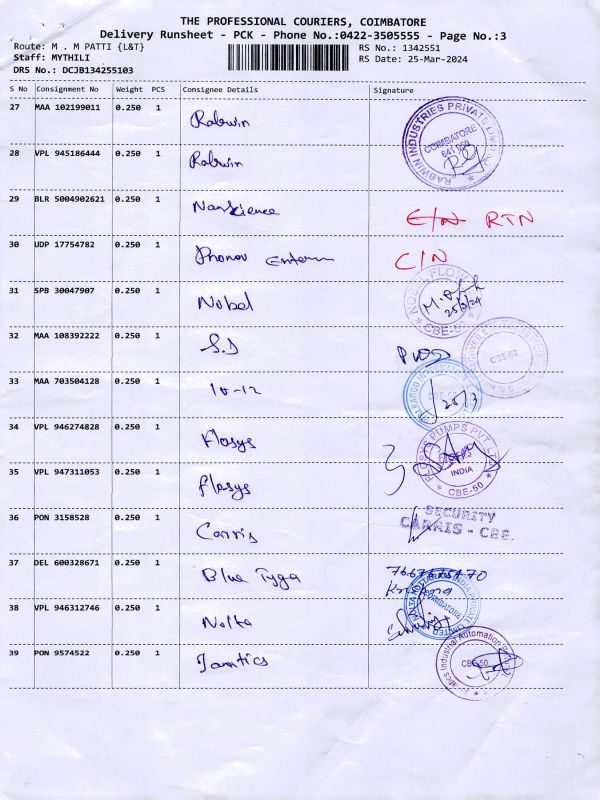 THE PROFESSIONAL COURIERS, COIMBATORE
Delivery Runsheet - PCK - Phone No.:0422-3505555 - Page No.:3
Route: M . M PATTI {L&T}
Staff: MYTHILI
DRS No.: DCJB134255103
RS No.: 1342551
RS Date: 25-Mar-2024
S No Consignment No Weight PCS Consignee Details Signature
27 MAA 102199011 0.250 1 Rabwin
RABWIN INDUSTRIES PRIVATE LIMITED
COIMBATORE
28 VPL 945186444 0.250 1 Rabwin
29 BLR 5004902621 0.250 1 Nanscience C/N RTN
30 UDP 17754782 0.250 1 C/N
31 SPB 30047907 0.250 1 Nobel
NOBEL FLOW
25/3/24
CBE-50
32 MAA 108392222 0.250 1 S.D
CBE-50
33 MAA 703504128 0.250 1 10-12 25/3
34 VPL 946274828 0.250 1 Flosys
PUMPS PVT
INDIA
CBE-50
35 VPL 947311053 0.250 1 Flosys
36 PON 3158528 0.250 1 Carris
SECURITY
CARRIS - CBE.
37 DEL 600328671 0.250 1 Blue Tyga
38 VPL 946312746 0.250 1 Nalta
COIMBATORE
39 PON 9574522 0.250 1 Janatics
Janatics Industrial Automation
CBE-50